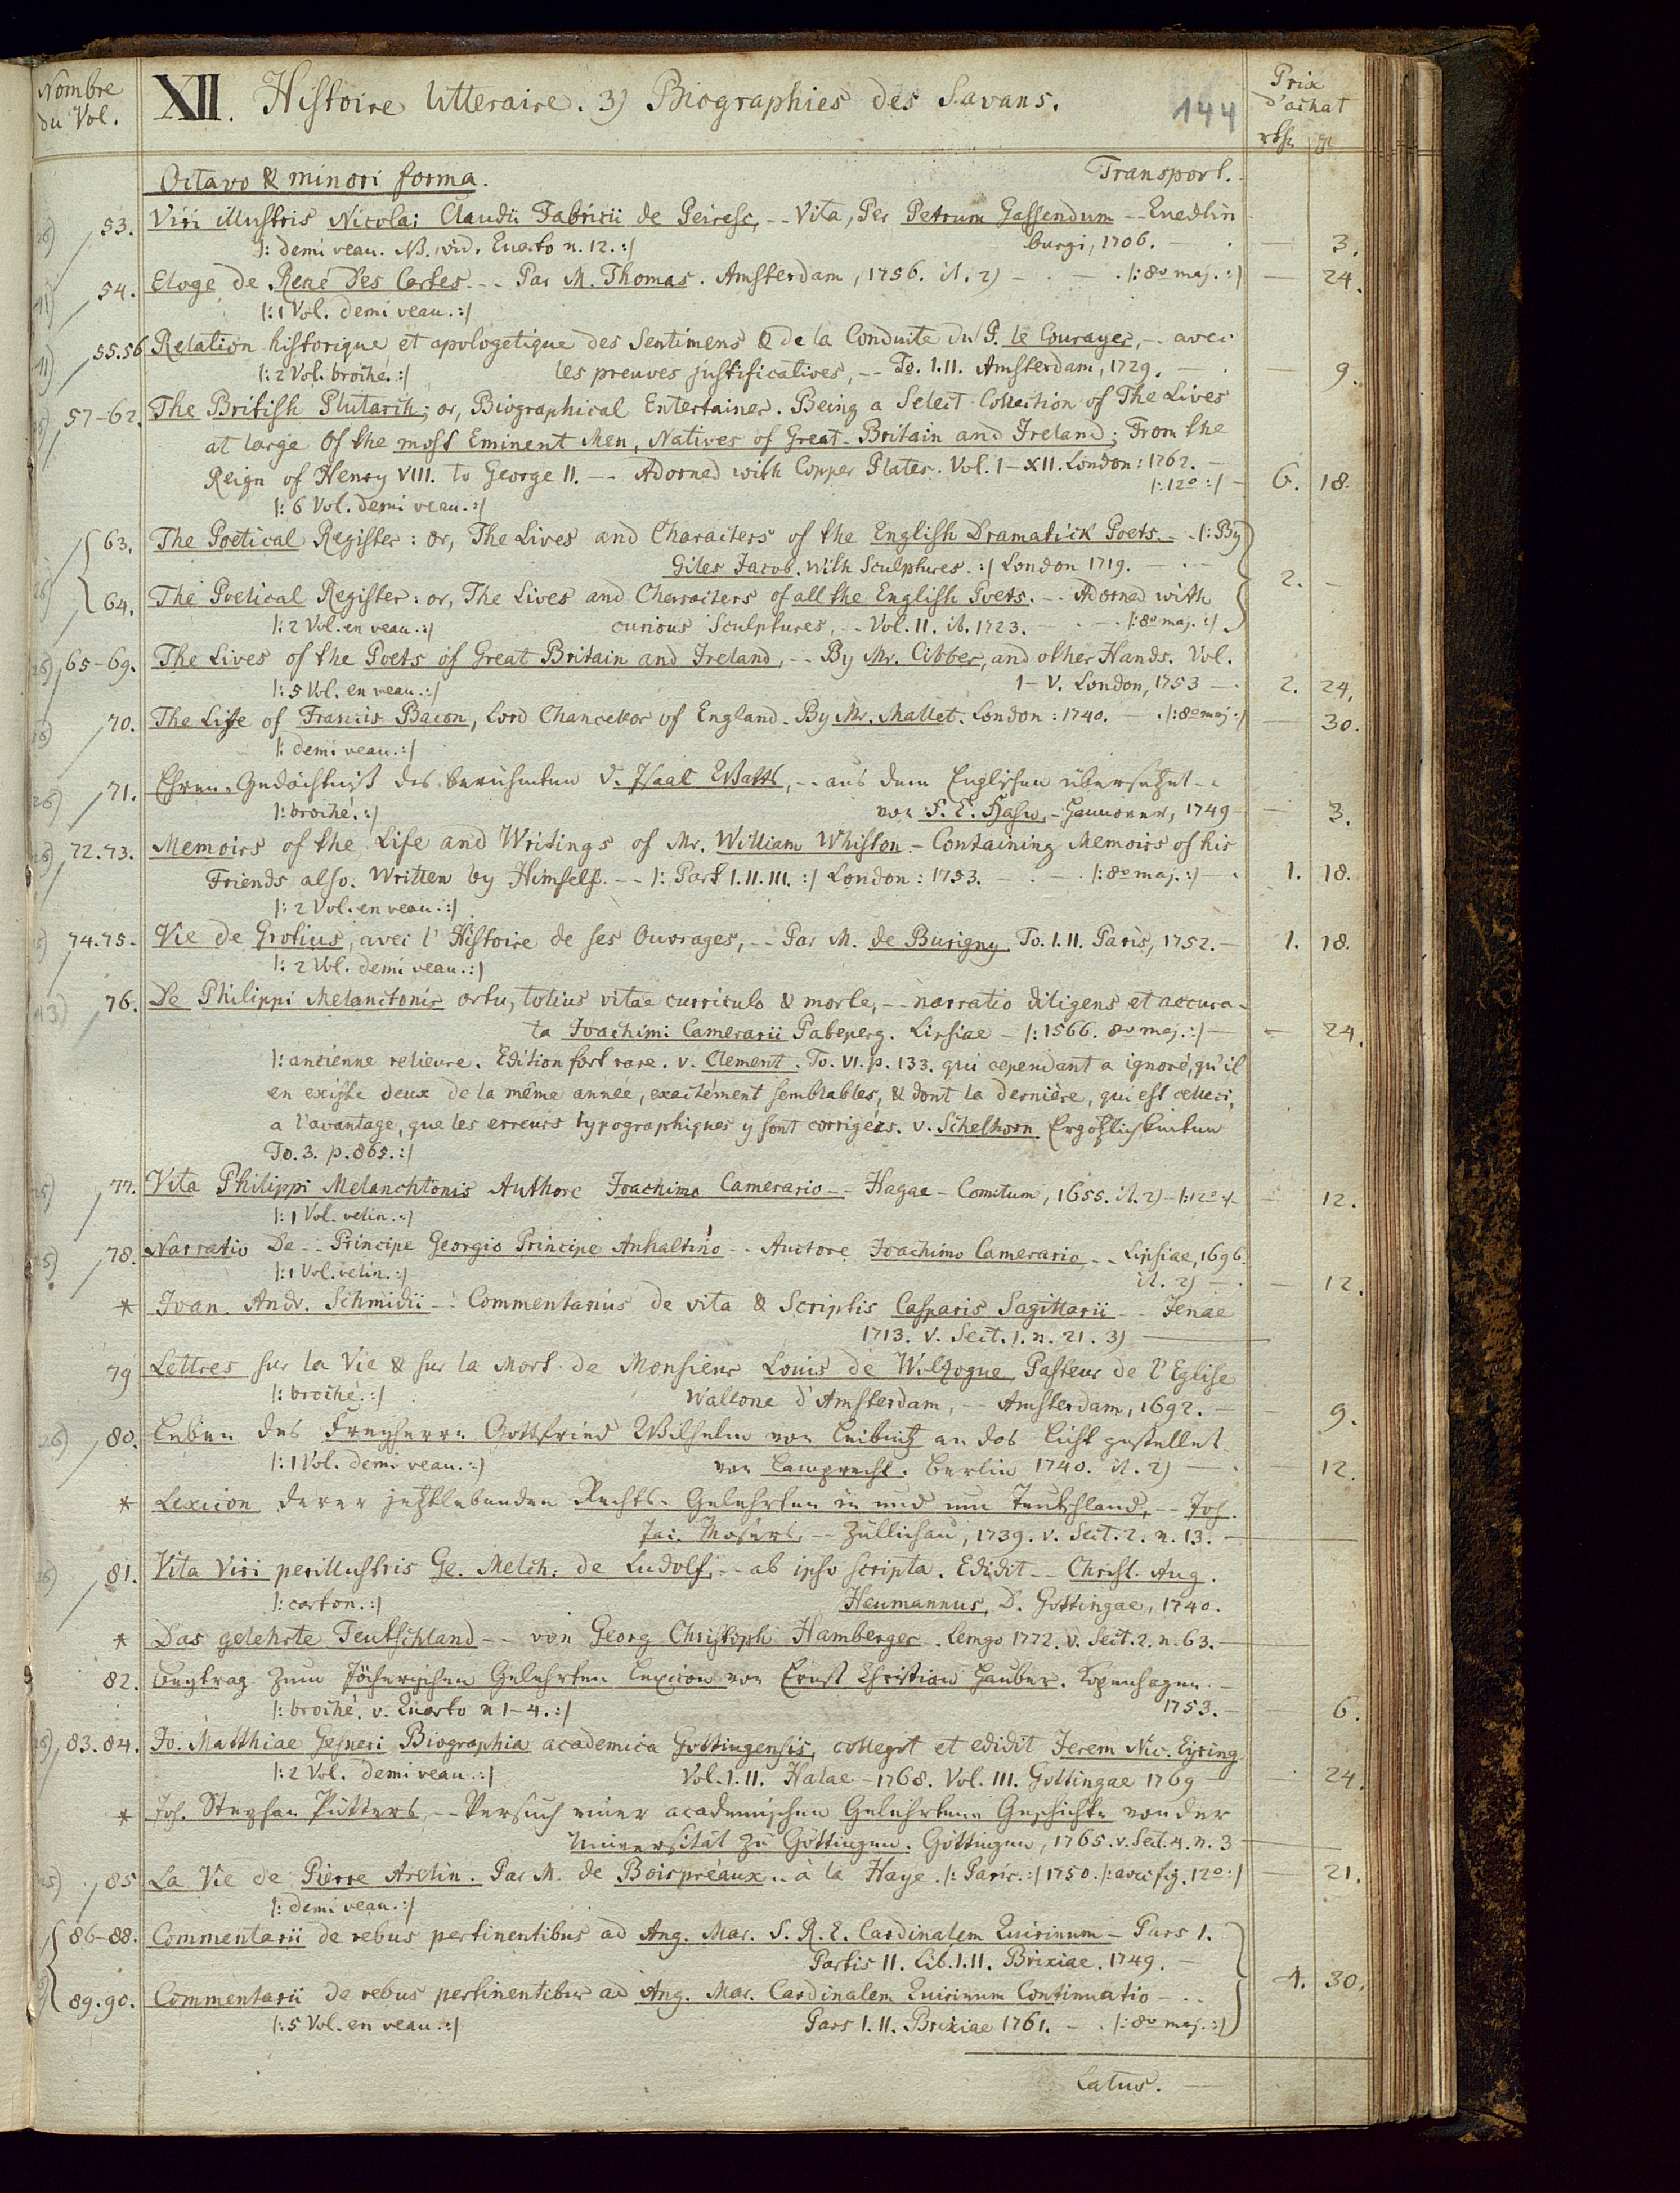 Nombre du Vol.
XII. Histoire litteraire. 3) Biographies des Savans.
144
Prix d'achat
rthr. gl
Octavo & minori forma. Transport.
53. Viri illustris Nicolai Claudii Fabricii de Peiresc, -- Vita, Per Petrum Gassendum -- Quedlin-
|: demi veau. NB. vid. Quarto n. 12. :| burgi, 1706. — — 3.
54. Eloge de René Des Cartes -- Par M. Thomas. Amsterdam, 1756. it. 2) — |: 8vo maj. :| — 24.
|: 1 Vol. demi veau. :|
55.56 Relation historique et apologetique des Sentimens & de la Conduite du P. le Courayer, -- avec
|: 2 Vol. broché. :| les preuves justificatives, -- To. I.II. Amsterdam, 1729. — — 9.
57-62. The British Plutarch; or, Biographical Entertainer. Being a Select Collection of The Lives
at large Of the most Eminent Men, Natives of Great-Britain and Ireland; From the
Reign of Henry VIII. to George II. -- Adorned with Copper Plates. Vol. I-XII. London: 1762. —
|: 12o :| — 6. 18.
|: 6 Vol. demi veau. :|
63. The Poetical Register: or, The Lives and Characters of the English Dramatick Poets. -- |: By
Giles Jacob. With Sculptures. :| London 1719. — —
2. —
64. The Poetical Register: or, The Lives and Characters of all the English Poets. -- Adorned with
|: 2 Vol. en veau. :| curious Sculptures, -- Vol. II. ib. 1723. — |: 8vo maj. :|
65-69. The Lives of the Poets of Great Britain and Ireland, -- By Mr. Cibber, and other Hands. Vol.
|: 5 Vol. en veau. :| I-V. London, 1753 — 2. 24.
70. The Life of Francis Bacon, Lord Chancellor of England. By Mr. Mallet. London: 1740. — |: 8vo maj :| — 30.
|: demi veau. :|
71. Ehren-Gedächtniß des berühmten D. Isaac Watts, -- aus dem Englischen übersetzet --
|: broché. :| von S. E. Hasw. - Hannover, 1749 — 3.
72.73. Memoirs of the Life and Writings of Mr. William Whiston - Containing Memoirs of his
Friends also. Written by Himself. -- |: Part I.II.III. :| London: 1753. — |: 8vo maj. :| — 1. 18.
|: 2 Vol. en veau. :|
74.75. Vie de Grotius, avec l'Histoire de ses Ouvrages, -- Par M. de Burigny. To. I.II. Paris, 1752. — 1. 18.
|: 2 Vol. demi veau. :|
76. De Philippi Melanctonis ortu, totius vitae curriculo & morte, -- narratio diligens et accura-
ta Joachimi Camerarii Pabeperg. Lipsiae - |: 1566. 8vo maj. :| — — 24.
|: ancienne relieure. Edition fort rare. v. Clement. To. VI. p. 133. qui cependant a ignoré, qu'il
en existe deux de la même année, exactément semblables, & dont la dernière, qui est celleci,
a l'avantage, que les erreurs typographiques y sont corrigées. v. Schelhorn Ergötzlichkeiten
To. 3. p. 865. :|
77. Vita Philippi Melanchtonis Authore Joachimo Camerario -- Hagae-Comitum, 1655. it. 2) - |: 12o :| — 12.
|: 1 Vol. velin. :|
78. Narratio De -- Principe Georgio Principe Anhaltino -- Auctore Joachimo Camerario -- Lipsiae, 1696.
|: 1 Vol. velin. :| it. 2) — — 12.
* Joan. Andr. Schmidii -- Commentarius de vita & Scriptis Casparis Sagittarii -- Jenae
1713. v. Sect. 1. n. 21. 3) —
79 Lettres sur la Vie & sur la Mort de Monsieur Louis de Wolzogue Pasteur de l'Eglise
|: broché. :| Wallone d'Amsterdam, -- Amsterdam, 1692. — — 9.
80. Leben des Freyherrn Gottfried Wilhelm von Leibnitz an das Licht gestellet
|: 1 Vol. demi veau. :| von Lamprecht. Berlin 1740. it. 2) — — 12.
* Lexicon derer jetztlebenden Rechts-Gelehrten in und um Teutschland, -- Joh.
Jac. Mosers, -- Züllichau, 1739. v. Sect. 2. n. 13. —
81. Vita Viri perillustris Ge. Melch. de Ludolf, -- ab ipso scripta. Edidit -- Christ. Aug.
|: carton. :| Heumannus, D. Gottingae, 1740.
* Das gelehrte Teutschland -- von Georg Christoph Hamberger. Lemgo 1772. v. Sect. 2. n. 63. —
82. Beytrag zum Jöcherischen Gelehrten Lexicon von Ernst Christian Hauber. Kopenhagen. —
|: broché. v. Quarto n 1-4. :| 1753. — — 6.
83.84. Jo. Matthiae Gesneri Biographia academica Gottingensis, collegit et edidit Jerem Nic. Eyring
|: 2 Vol. demi veau. :| Vol. I.II. Halae - 1768. Vol. III. Gottingae 1769 — — 24.
* Joh. Stephan Pütters, -- Versuch einer academischen Gelehrten Geschichte von der
Universität zu Göttingen. Göttingen, 1765. v. Sect. 4. n. 3 —
85 La Vie de Pierre Aretin. Par M. de Boispréaux.. à la Haye. |: Paris. :| 1750. |: avec fig. 12o :| — 21.
|: demi veau. :|
86-88. Commentarii de rebus pertinentibus ad Ang. Mar. S. R. E. Cardinalem Quirinum - Pars I.
Partis II. Lib. I.II. Brixiae. 1749. —
4. 30.
89.90. Commentarii de rebus pertinentibus ad Ang. Mar. Cardinalem Quirinum Continuatio - ..
|: 5 Vol. en veau. :| Pars I.II. Brixiae 1761. — |: 8vo maj. :|
Latus. —